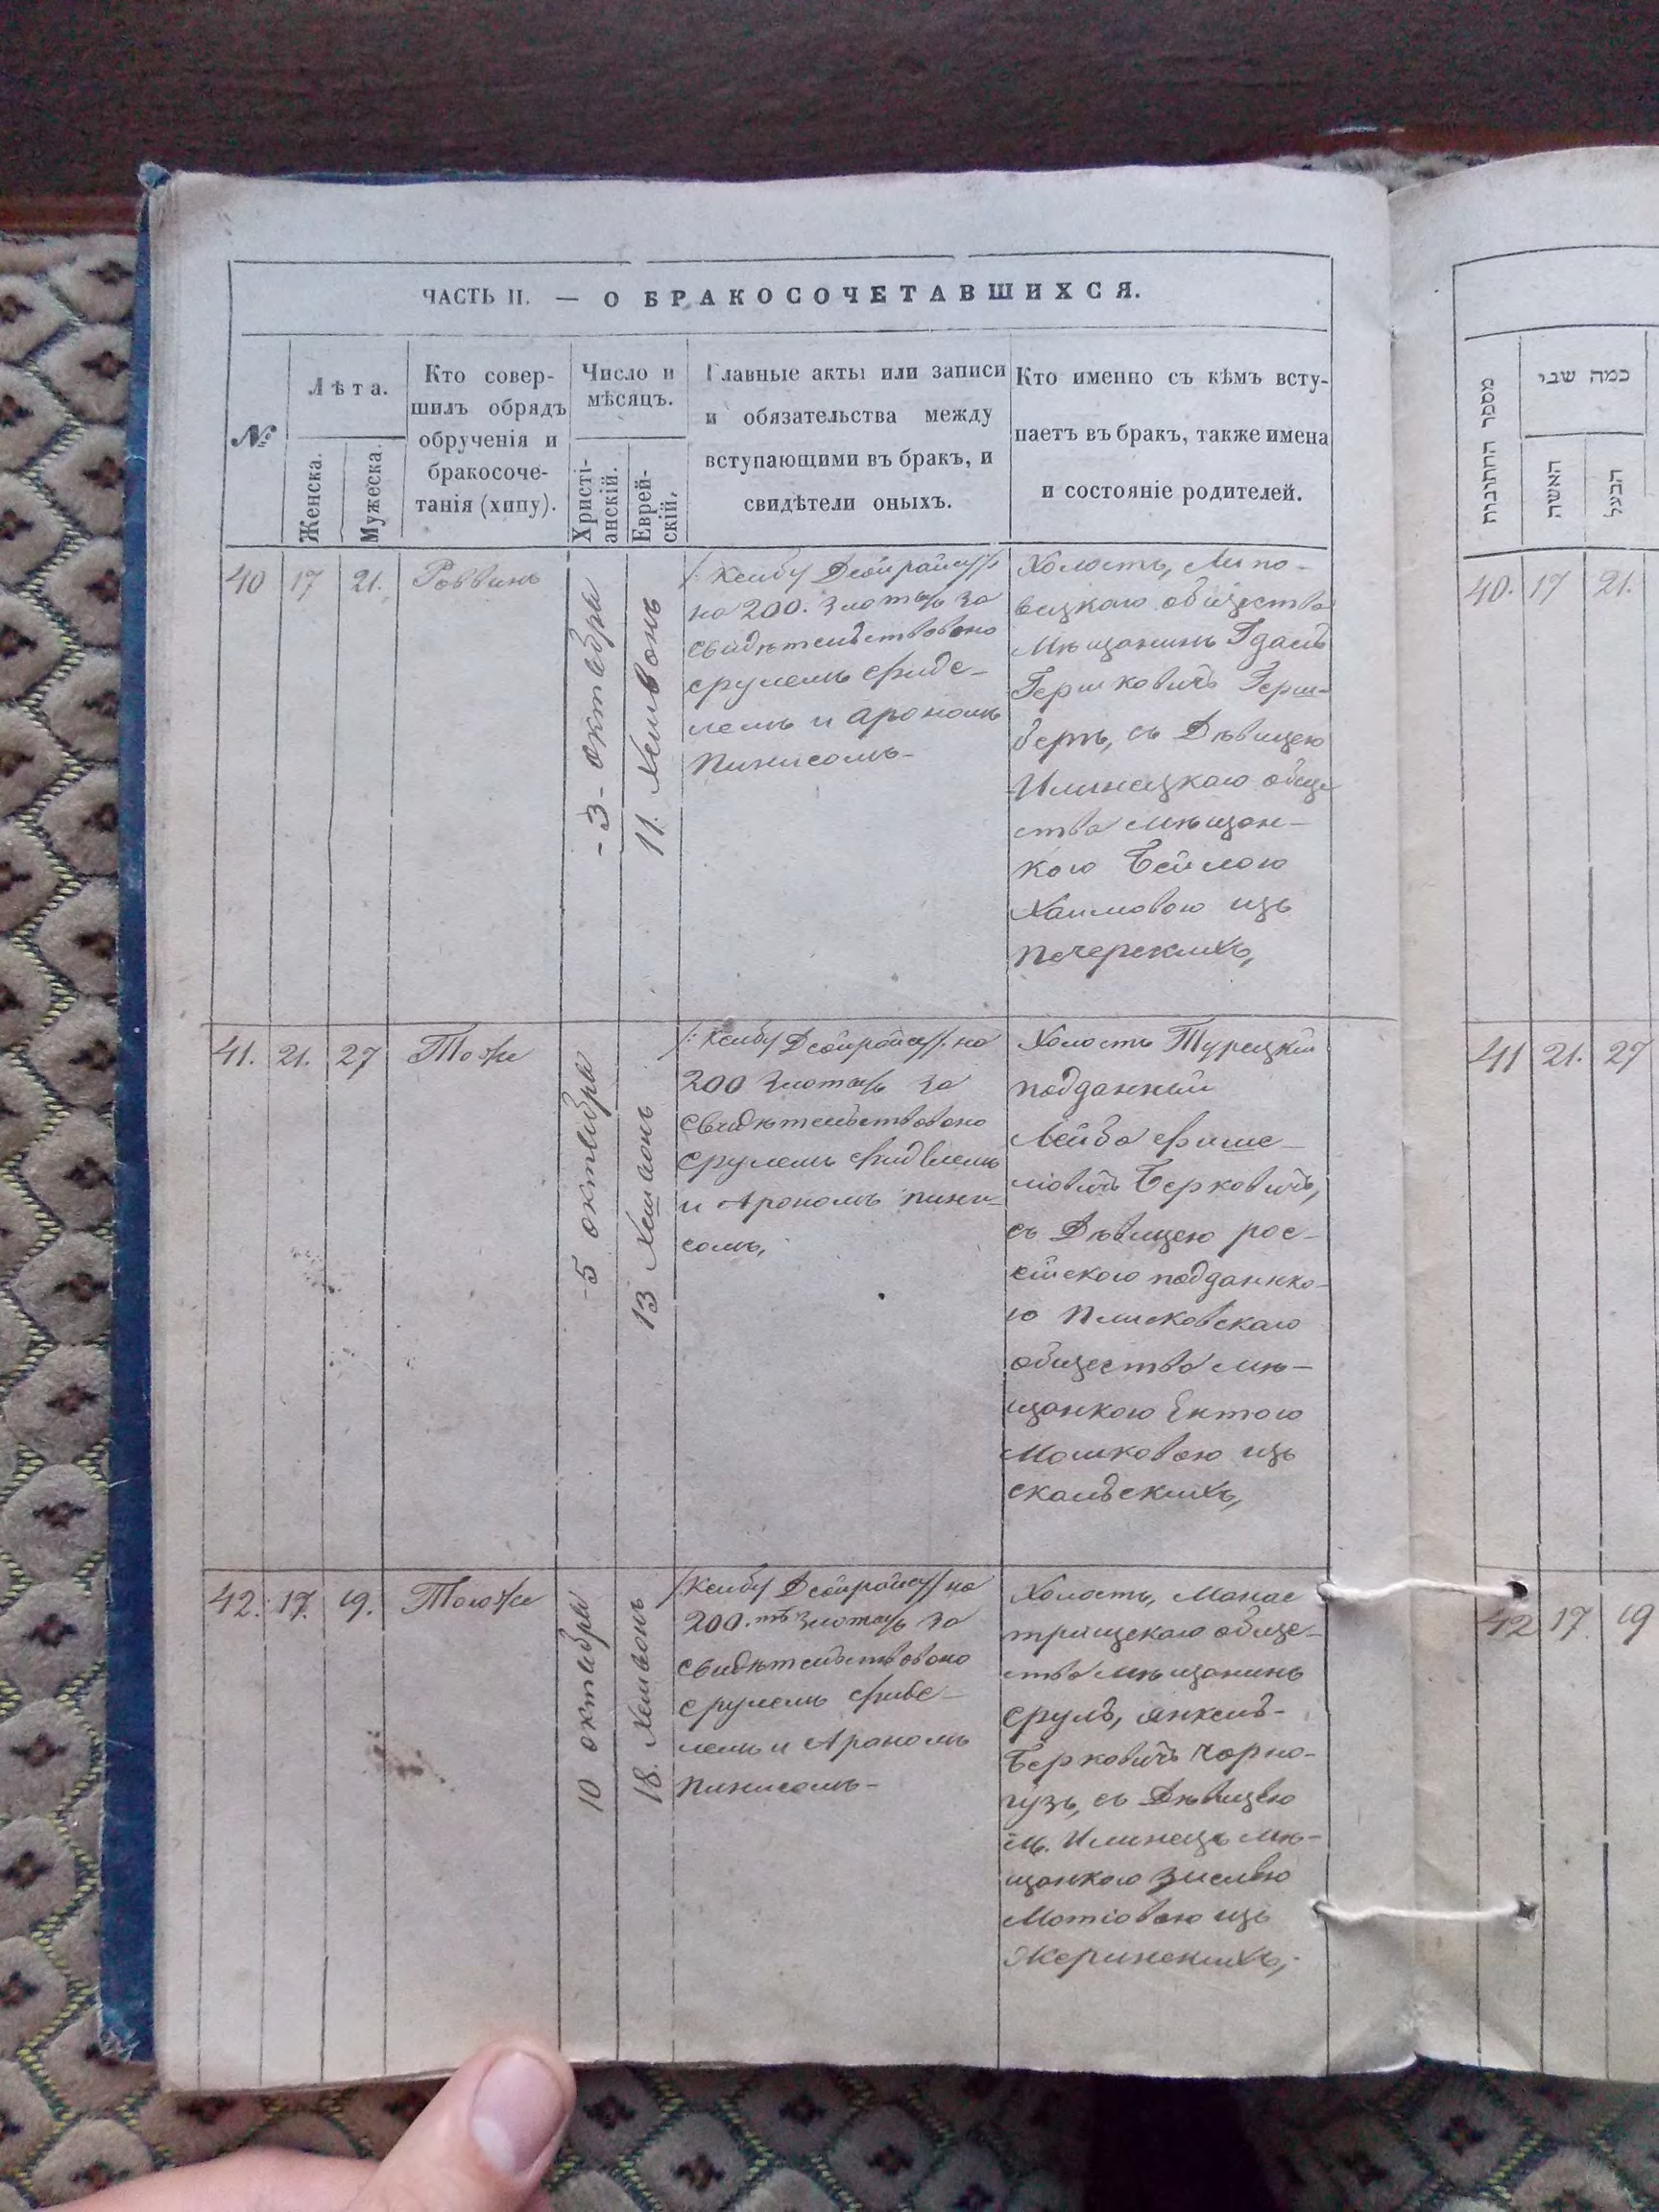 ЧАСТЬ II. — О БРАКОСОЧЕТАВШИХСЯ.
№
Лѣта.
Женска.
Мужеска.
Кто совер-
шилъ обрядъ
обрученія и
бракосоче-
танія (хипу).
Число и
мѣсяцъ.
Христі-
анскій.
Еврей-
скій.
Главные акты или записи
и обязательства между
вступающими въ бракъ, и
свидѣтели оныхъ.
Кто именно съ кѣмъ всту-
паетъ въ бракъ, также имена
и состояніе родителей.
40
17
21.
Раввинъ
- 3 - октября
11. Хешвонъ
/: Ксибу Дсойрайсу/:
на 200. злотыхъ за
свидѣтельствовано
Срулемъ Фиде-
лемъ и Арономъ
Пинисомъ-
Холостъ, Липо-
вецкаго общества
мѣщанинъ Гдаль
Гершковичъ Герш-
бергъ, съ Дѣвицею
Илинецкаго обще
ства мѣщан-
кою Бейлою
Хаимовою изъ
Печерскихъ,
41.
21.
27
Тоже
-5 октября
13 Хешвонъ
/: Ксибу Дсойрайсу/: на
200 злотыхъ за
свидѣтельствовано
Срулемъ Фидлемъ
и Арономъ Пини-
сомъ,
Холостъ Турецкій
подданный
Лейба Фише-
левичъ Берковичъ,
съ Дѣвицею рос-
сійскою подданно-
ю Плисковскаго
общества мѣ-
щанкою Ентою
Мошковою изъ
Скальскихъ,
42.
17.
19.
Тоже
10 октября
18. Хешвонъ
/: Ксибу Дсойрайсу/: на
200.тъ злотыхъ за
свидѣтельствовано
Срулемъ Фиде-
лемъ и Арономъ
Пинисомъ-
Холостъ, Монас
трищскаго обще-
ства мѣщанинъ
Срулъ, Янкель-
Берковичъ Чорно-
гузъ, съ Дѣвицею
м. Илинецъ мѣ-
щанкою Зислею
Мотіовою изъ
Жеринскихъ,-
מספר החתונות
כמה שני
האשה
הבעל
40.
17
21.
41
21.
27
42
17.
19